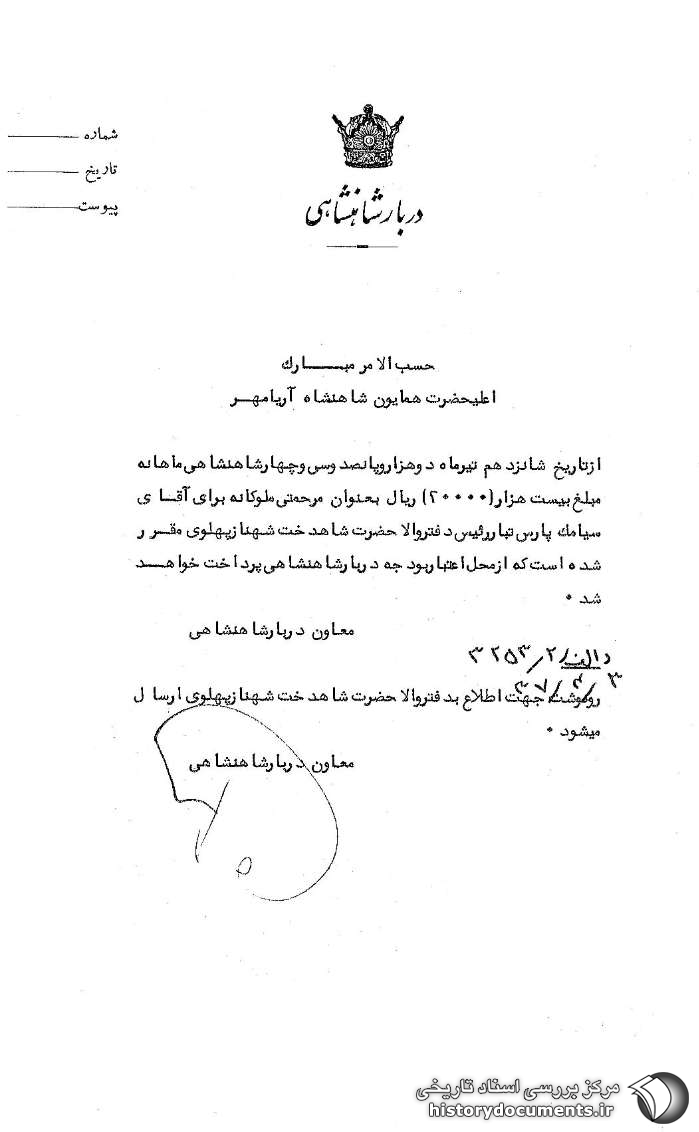 شماره
تاریخ
پیوست
دربار شاهنشاهی
حسب الامر مبـــــارك
اعلیحضرت همایون شاهنشاه آریامهـر
ازتاریخ شانزدهم تیرماه دوهزاروپانصدوسی وچهارشاهنشاهی ماهانه
مبلغ بیست هزار(۲۰۰۰۰) ریال بعنوان مرحمتی ملوکانه برای آقـای
سیامك پارس تبار رئیس دفتر والاحضرت شاهدخت شهنازپهلوی مقـرر
شده است که ازمحل اعتبار بودجه دربارشاهنشاهی پرداخت خواهـد
شد ۰
معاون دربارشاهنشاهی
دالف/۲/۳۲۵۳
۳۷/۴/۳
رونوشت جهت اطلاع بدفتر والاحضرت شاهدخت شهنازپهلوی ارسال
میشود ۰
معاون دربارشاهنشاهی
مرکز بررسی اسناد تاریخی
historydocuments.ir